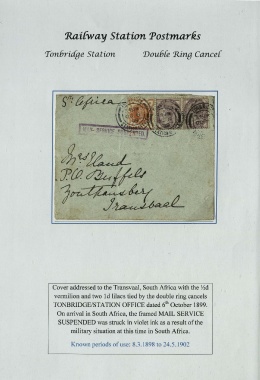 Railway Station Postmarks
Tonbridge Station Double Ring Cancel
Sth Africa
MAIL SERVICE SUSPENDED
Mrs Eland
P.O. Buffels
Zoutpansberg
Transvaal
Cover addressed to the Transvaal, South Africa with the ½d
vermilion and two 1d lilacs tied by the double ring cancels
TONBRIDGE/STATION OFFICE dated 6th October 1899.
On arrival in South Africa, the framed MAIL SERVICE
SUSPENDED was struck in violet ink as a result of the
military situation at this time in South Africa.
Known periods of use: 8.3.1898 to 24.5.1902